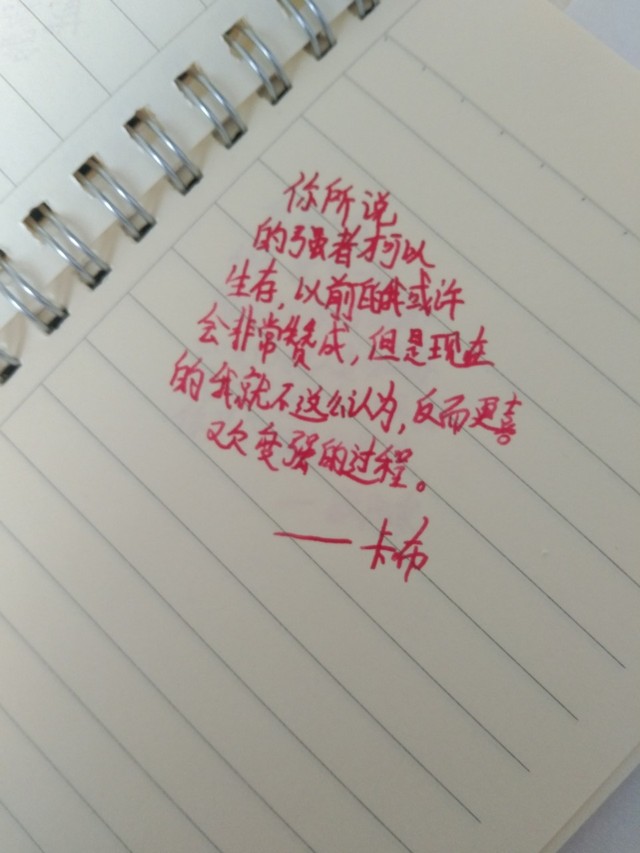 你所说
的强者才可以
生存，以前的我或许
会非常赞成，但是现在
的我就不这么认为，反而更喜
欢变强的过程。
——卡布